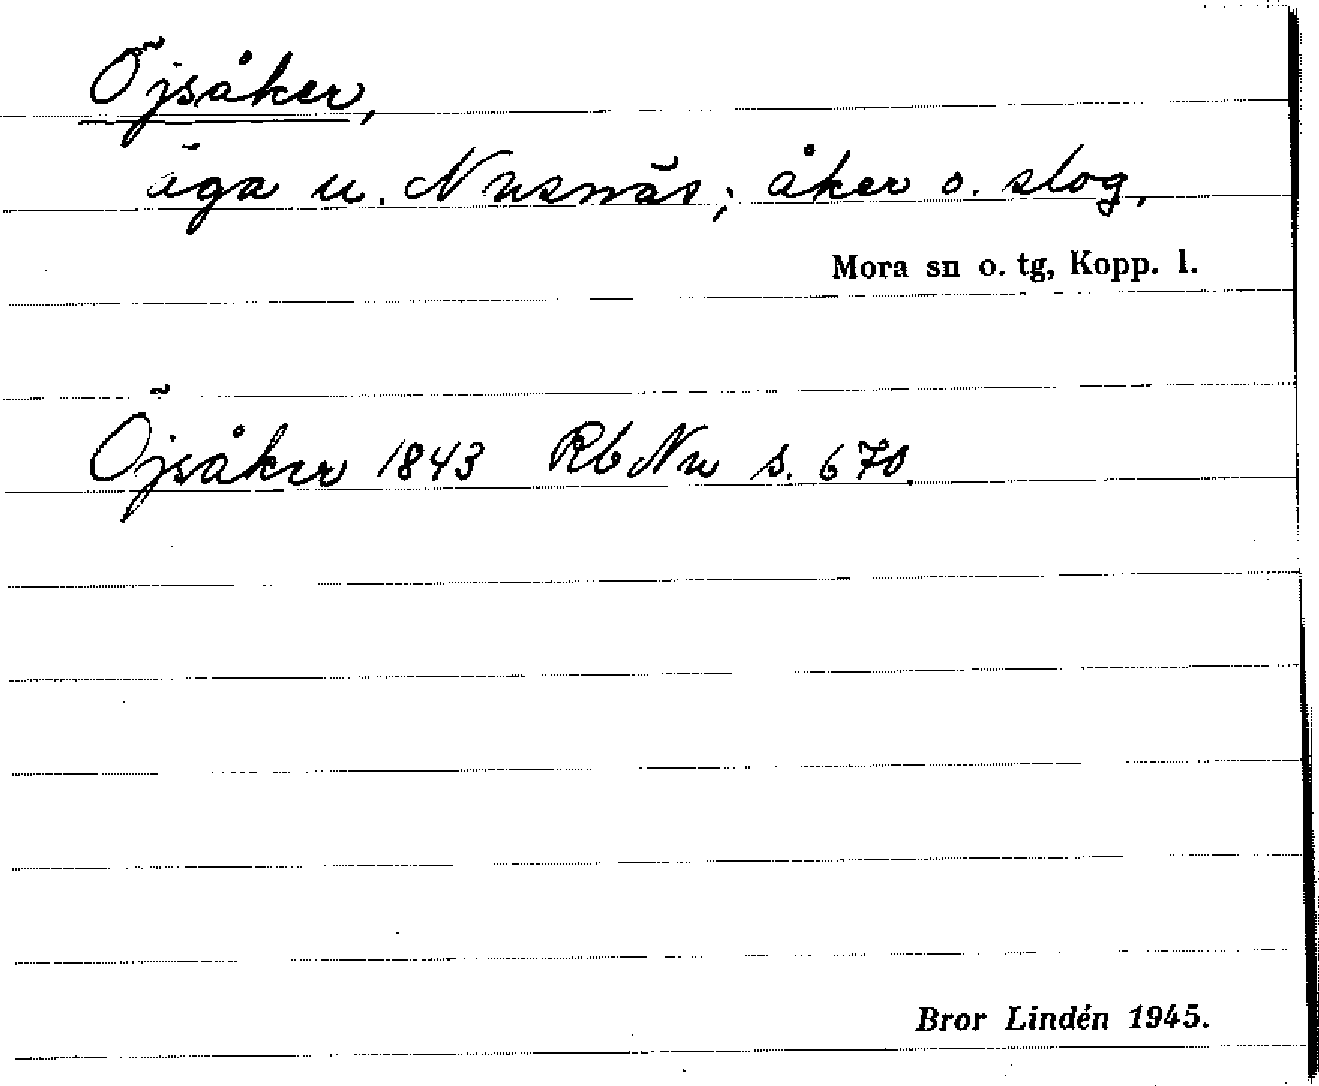 Öjsåker,
äga u. Nusnäs; åker o. slog,
Mora sn o. tg, Kopp. l.
Öjsåker 1843 RbNu s. 670.
Bror Lindén 1945.